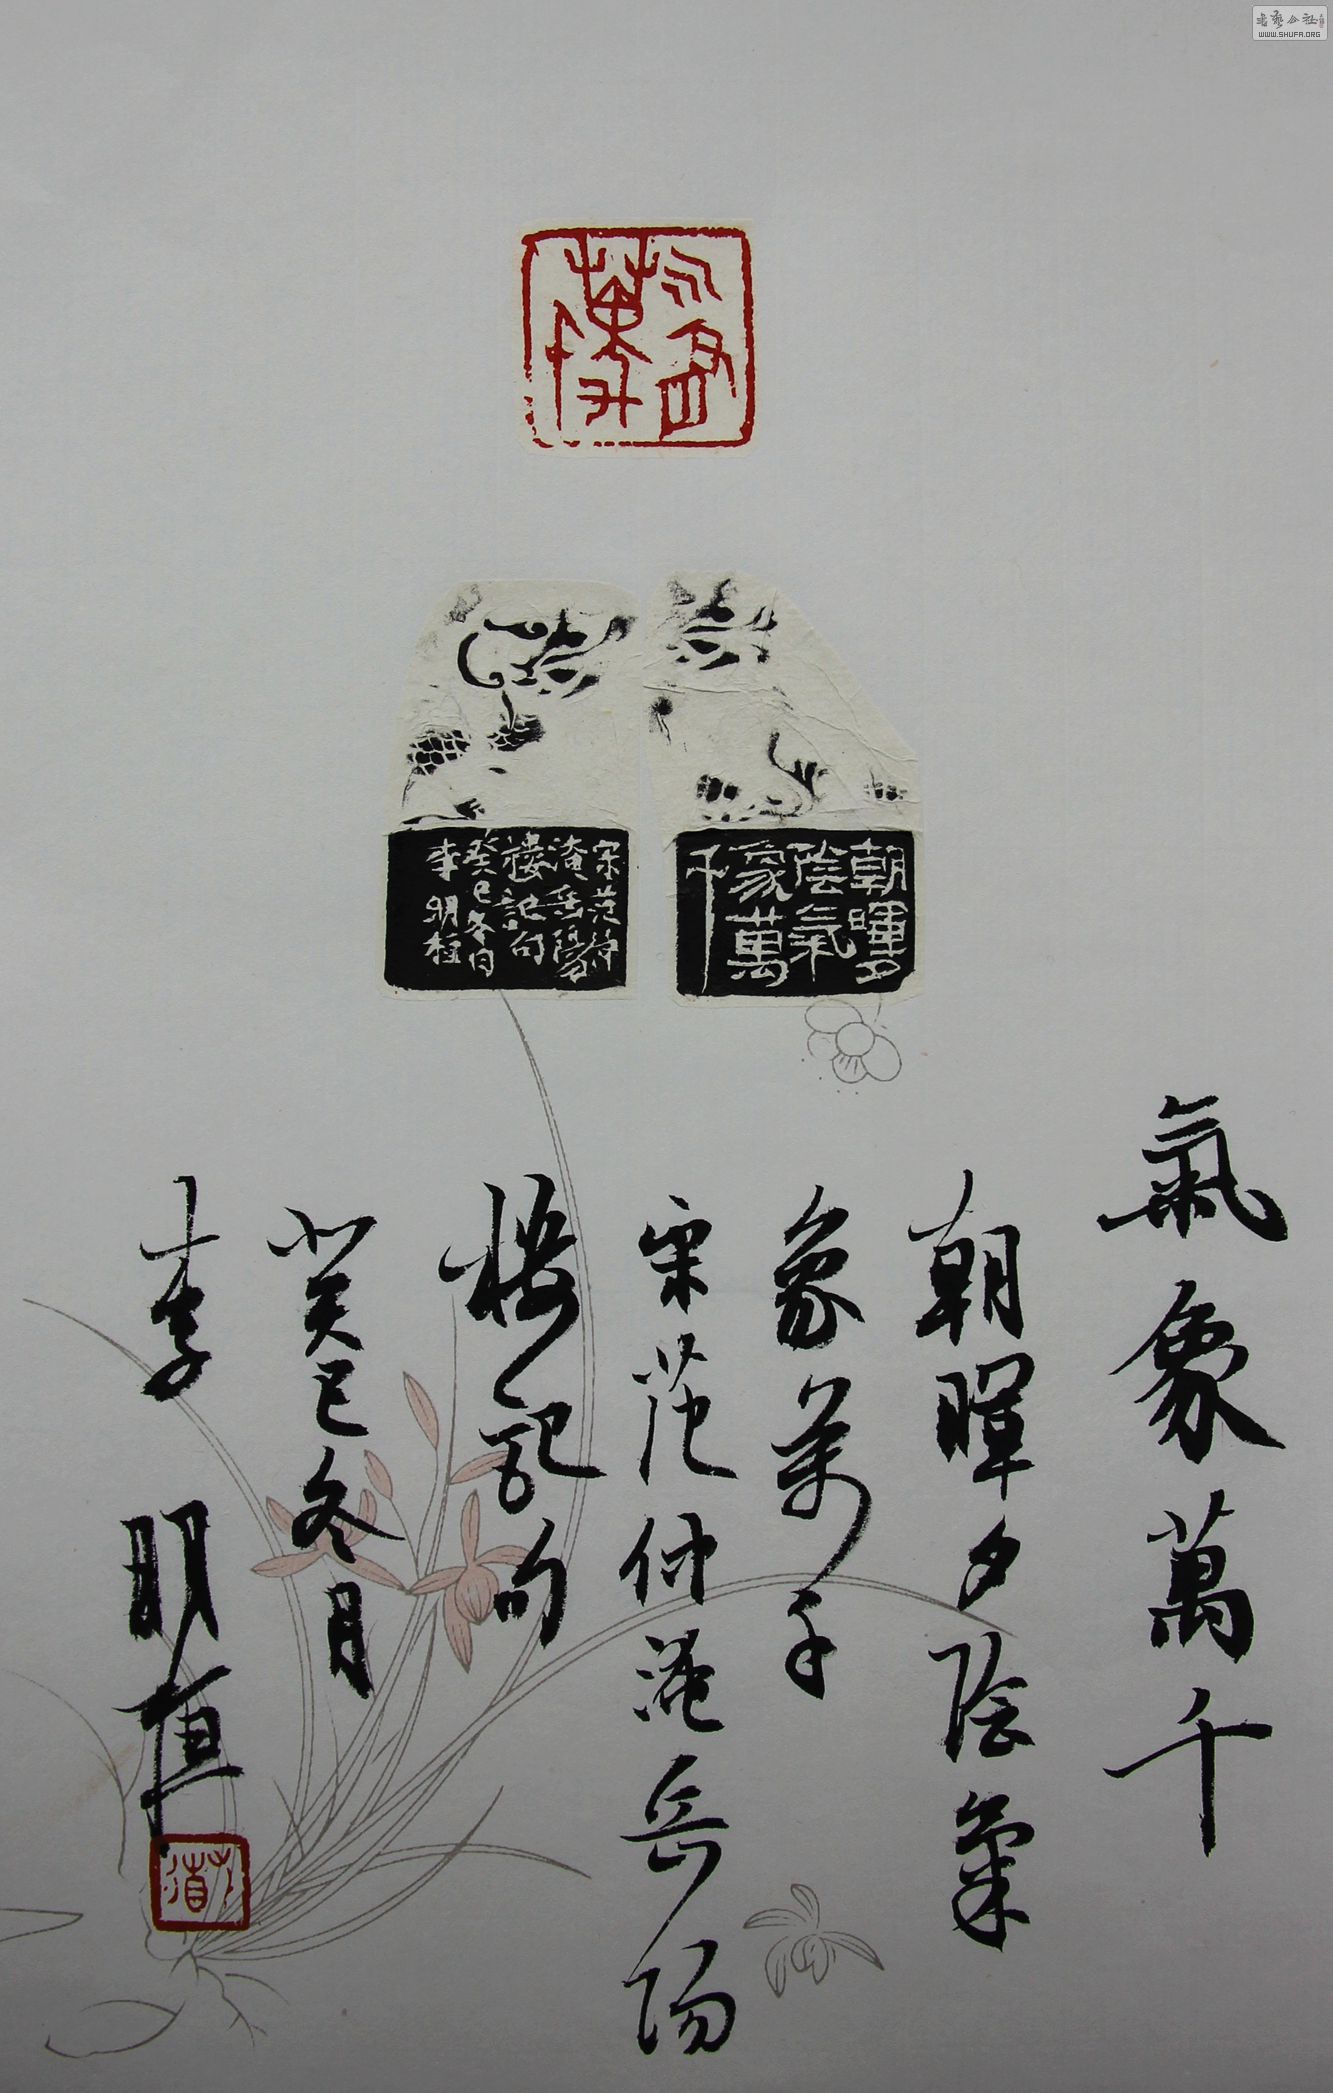 書藝公社
WWW.SHUFA.ORG
气象
萬千
朝暉夕
陰氣
象萬
千
宋范仲
淹岳陽
樓記句
癸巳冬日
李明植
氣象萬千
朝暉夕陰氣
象萬千
宋范仲淹岳陽
樓記句
癸巳冬月
李明植